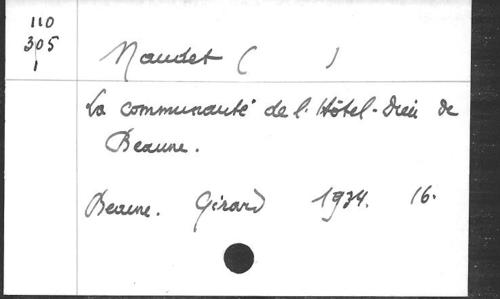 110
305
1
Naudet ( )
La communauté de l. Hôtel-Dieu de
Beaune.
Beaune. Girard 1934. 16.